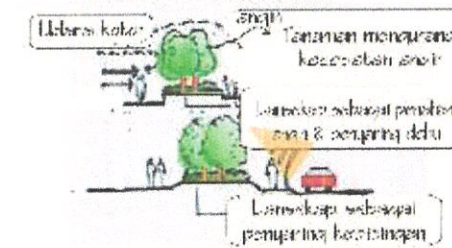 Udara kotor
angin
Tanaman mengurangi
kecepatan angin
Lansekap sebagai penahan
angin & penyaring debu
Lansekap sebagai
penyaring kebisingan